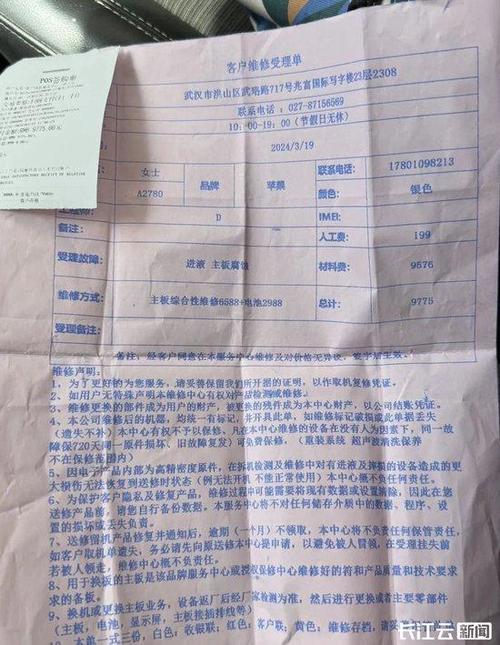 POS签购单
RMB 9775.00
客户维修受理单
武汉市洪山区武珞路717号兆富国际写字楼23层2308
联系电话：027-87156569
10：00-19：00（节假日无休）
2024/3/19
女士 联系电话： 17801098213
A2780 品牌 苹果 颜色： 银色
工程师： D IMEI：
备注： 人工费： 199
受理故障： 进液 主板腐蚀 材料费： 9576
维修方式： 主板综合性维修6588+电池2988 总计： 9775
受理备注：
备注：经客户同意在本服务中心维修及对价格无异议，签字后生效。
维修声明：
1、为了更好的为您服务，请妥善保留我们所开据的证明，以作取机复修凭证。
2、如用户无特殊声明本维修中心有权对产品检测或维修。
3、维修更换的部件成为用户的财产，被更换的残件成为本中心财产，以公司结账凭证。
4、本公司维修后的机器，均统一有标记，并开具此单，如维修标记破损或此单据丢失
（遗失不补）本中心有权不予以保修，凡在本中心维修的设备在没有人为因素下，同一故
障保720天（同一原件损坏、旧故障复发）可免费保修，（重装系统 超声波清洗保养
不在保修范围内）
5、因电子产品内部为高精密度原件，在拆机检测及维修中对有进液及摔损的设备造成的更
大损伤无法恢复到送修时状态（例无法开机 不能正常使用）本中心概不负任何责任。
6、为保护客户隐私及修复产品，维修过程中可能需要将现有数据或设置清除，因此在您
送修产品前，请您自行备份数据。本服务中心将不对任何储存介质中的数据、程序、设
置的损坏或丢失负责。
7、送修留机产品修复并通知后，逾期（一个月）不领取，本中心将不负任何保管责任，
如客户取机单遗失，务必请先向原送修本中心提申请，以避免被人冒领，在受理挂失前
若被人领走，维修中心概不负责任。
8、用于换板的主板是该品牌服务中心或授权保修中心维修好的符和产品质量和技术要求
求的备板。
9、换机或更换主板业务，设备返厂后经厂家检测为准，然后进行更换或者主要零部件
（主板，电池，显示屏，主板接插排线等）
10、本单一式三份，白色：收银联；红色：客户联；黄色：维修存档，请
长江云新闻